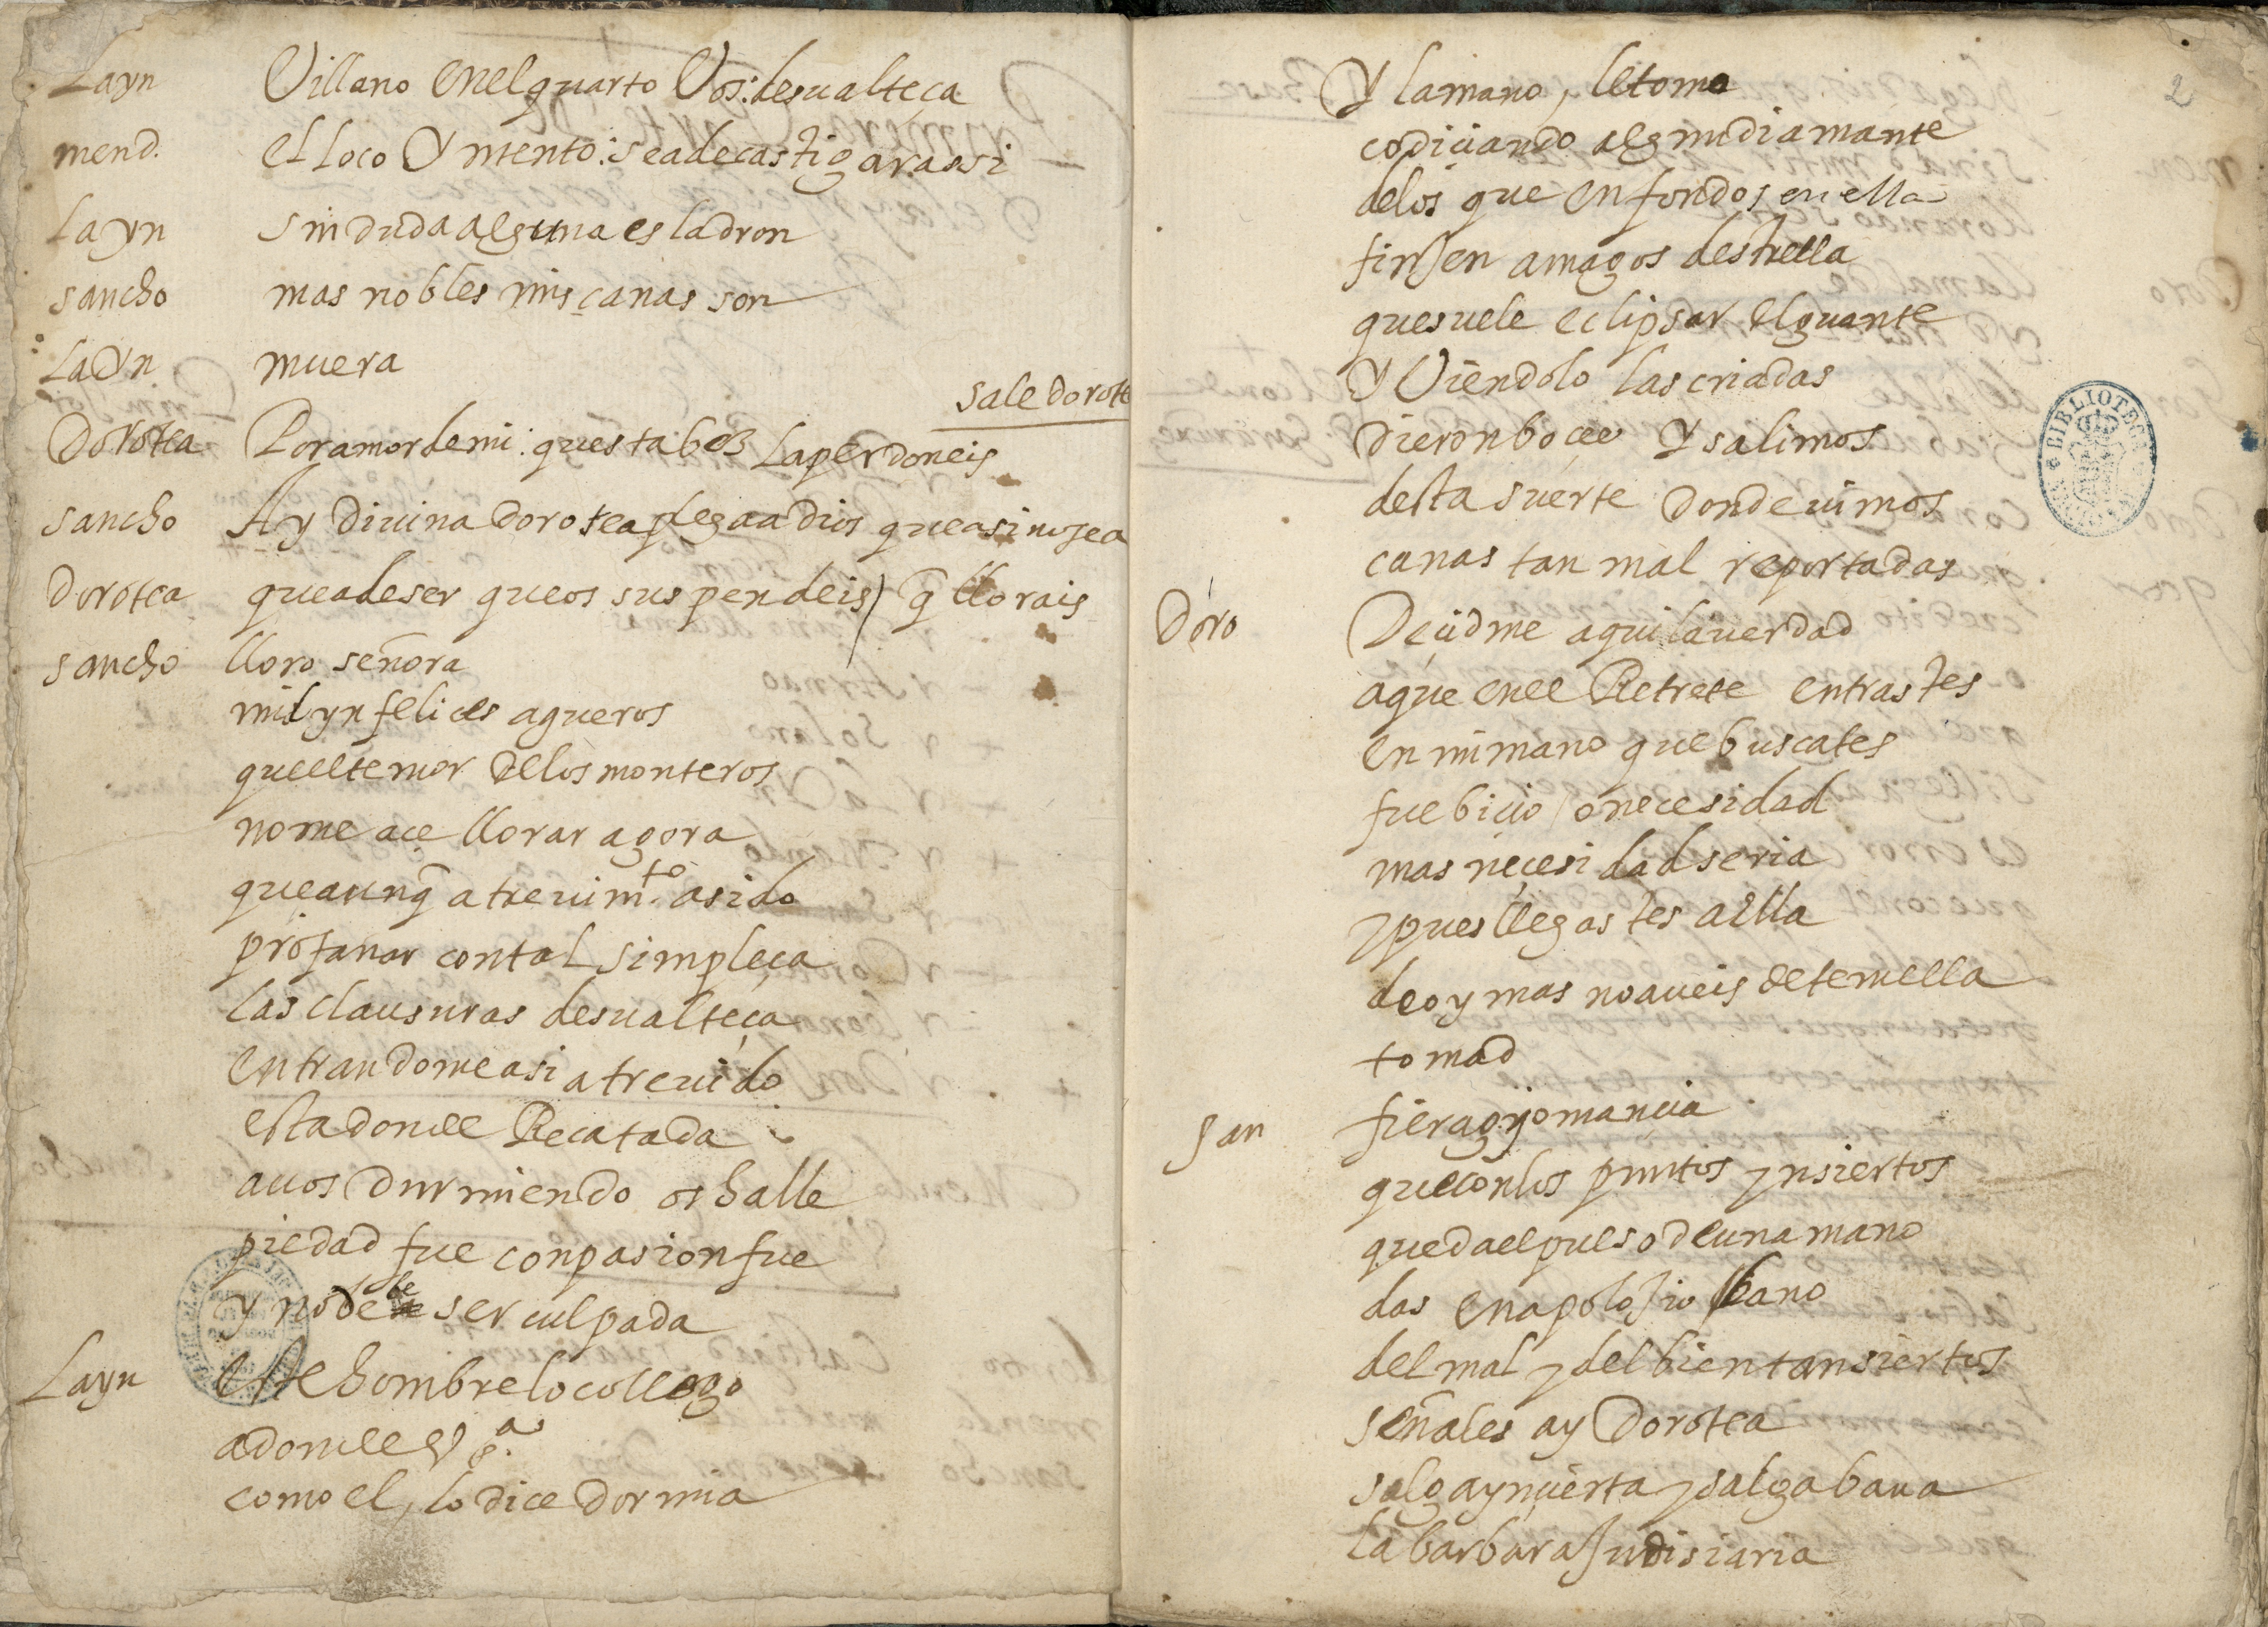 Layn Villano enel quarto Vos: desualteça
mend. el loco yntento: seadecastigar assi
Layn sin duda alguna es ladron
sancho mas nobles mis canas son
Layn muera
sale dorote
Dorotea Por amor demi: questa bez laperdoneis
sancho Ay diuina dorotea plegaa dios que asi nosea
dorotea queadeser queos suspendeis / q̃ llorais
sancho lloro señora
mil ynfelices agueros
queeltemor delos monteros
nome ace llorar agora
queaunq̃ atreuim.to asido
profanar contal simpleça
las clausuras desualteça
entrandomeasi atreuido
esta donçell Recatada
auos durmiendo os halle
piedad fue conpasion fue
y no debe ser culpada
Layn este hombre loco llego
adonde el
como el, lo dice dormia
2
Y lamano, letomo
codiciando algun diamante
delos que en fondos en ella
finjen amagos destrella
quesuele eclipsar elguante
Y Viendolo las criadas
dieron boçes Y salimos
desta suerte donde uimos
canas tan mal reportadas
Doro Decidme aqui lauerdad
aque enel Retrete entrastes
en mi mano que buscates
fue bicio / onecesidad
mas neçesidad seria
y pues llegastes aella
deoy mas no aueis detemella
tomad
San fiera qujomancia
queconlos puntos ynsiertos
quedael pulso deuna mano
das enapolojio bano
del mal y del bien tansiertos
señales ay Dorotea
salga ynçierta y salga bana
la barbara Judisiaria
BIBLIOTECA